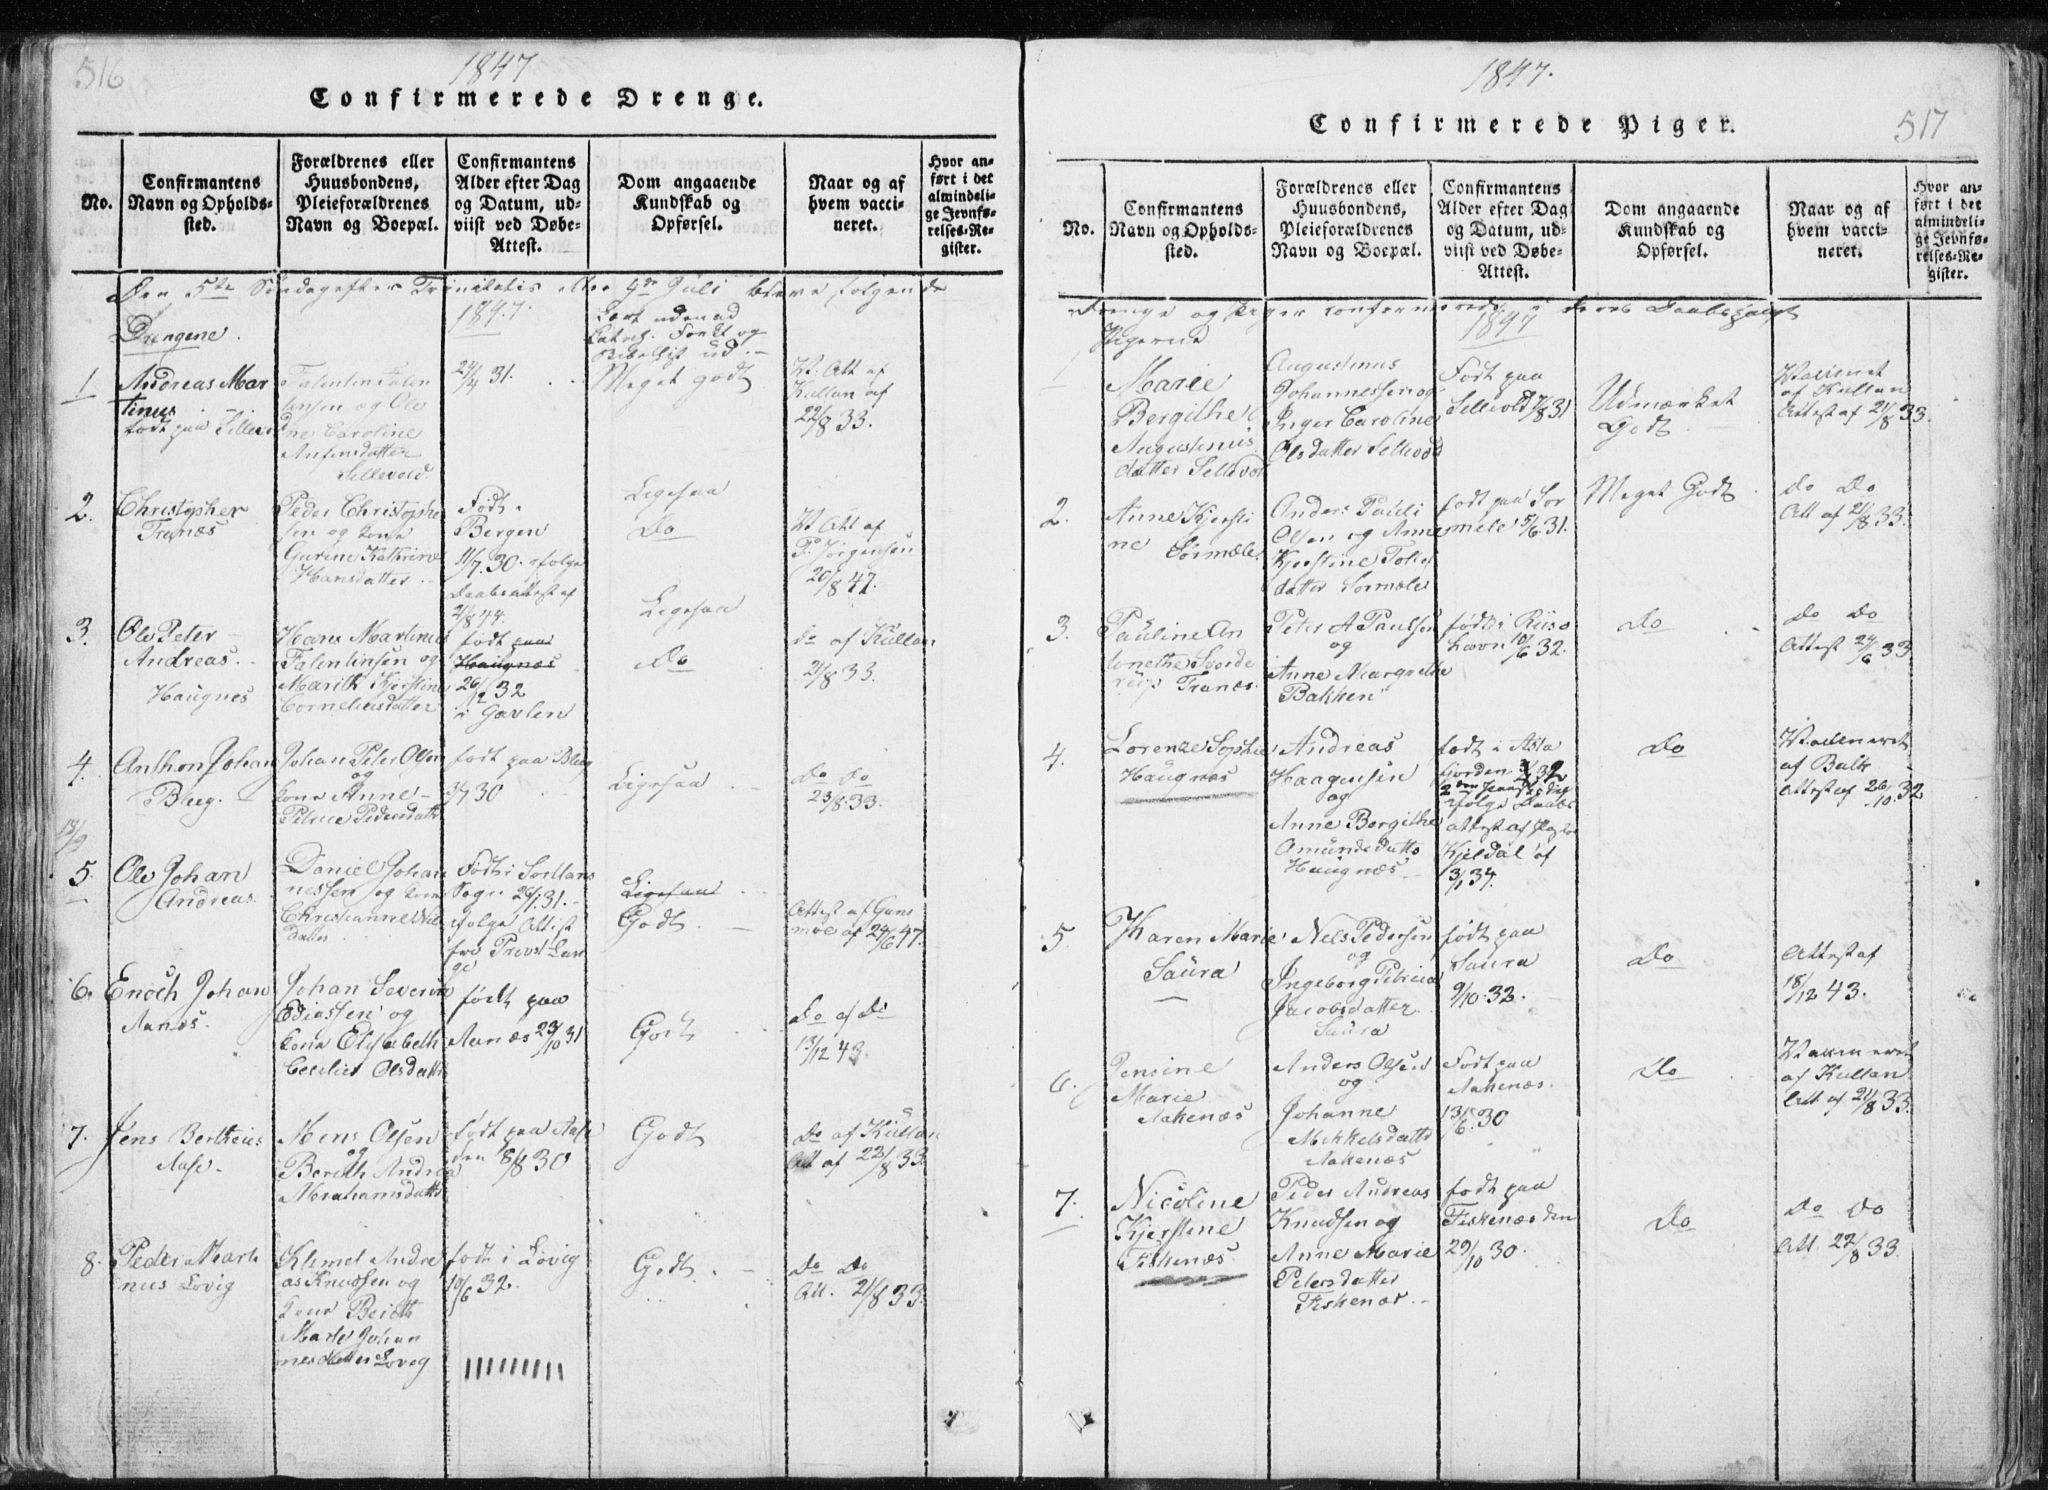 516
1847
Confirmerede Drenge.
No.
Confirmantens
Navn og Opholds-
sted.
Forældrenes eller
Huusbondens,
Pleieforældrenes
Navn og Boepæl.
Confirmantens
Alder efter Dag
og Datum, ud-
viist ved Døbe-
Attest.
Dom angaaende
Kundskab og
Opførsel.
Naar og af
hvem vacci-
neret.
Hvor an-
ført i det
almindeli-
ge Jevnfø-
relses-Re-
gister.
Den 5te Søndag efter Trinitatis eller 4de Juli bleve følgende
Drengene.
1847.
Lært udenad
1
Andreas Mar
tinus
født paa
Falentin Falen
tinsen og Ole
ane Caroline
datter
Sellevold.
24/4 31.
Meget godt
V. Att af
Kullan af
22/8 33.
2.
Christopher
Tranæs
Peder Christophe
sen og Kone
Gurine Kathrine
Hansdatter.
Født i
Bergen
11/7. 30. ifølge
Daabsattest af
2/8 44.
Ligesaa
Do
V. Att af
P. Jørgensen
20/8 47.
3.
Ole Peter
Andreas.
Haugnes
Hans Martinus
Falentinsen og
Marith Kjerstine
Corneliusdatter
født paa
Haugnæs
26/12 32
i Gavlen
Ligesaa
Do
do af Kullan
21/8 33.
4.
Anthon Johan
Bleeg.
Johan Peter Olsen
og
Kone Anne
Petrine Pedersdatt
født paa Bleeg
3/7 30
Ligesaa
Do do
23/8 33.
13/9
5.
Ole Johan
Andreas.
Daniel Johan
nessen og Kone
Christianne Niels
datter
Født i
Sogn 26/1 31.
ifølge Attest
fra Provst Lan
ge
Ligesaa
Godt
Attest af
af 24/6 47.
6.
Enoch Johan
Aanæs.
Johan Severin
Ediassen og
Kone Elisabeth
Cecilie Olsdatt
født paa
Aanæs 23/10 31
Godt
Do af Do
13/12 43.
7.
Jens Bertheus
Aase.
Mons Olsen
og
Berith Andrea
Abrahamsdatt
født paa Aase
den 18/8 30
Godt
Do af Kullan
Att af 22/8 33.
8.
Peder Marti
nus Lovig
Klemet Andre
as Knudsen og
Kone Berith
Marte Johan
nesdatter Lovig
født i Lovig
10/6 32.
Godt.
Do Do
Att. 21/8 33.
1847.
Confirmerede Piger.
517
No.
Confirmantens
Navn og Opholds-
sted.
Forældrenes eller
Huusbondens,
Pleieforældrenes
Navn og Boepæl.
Confirmantens
Alder efter Dag
og Datum, ud-
viist ved Døbe-
Attest.
Dom angaaende
Kundskab og
Opførsel.
Naar og af
hvem vacci-
neret.
Hvor an-
ført i det
almindeli-
ge Jevnfø-
relses-Re-
gister.
Drenge og Piger confirmerede i deres Daabspagt
Pigerne
1847
1
Maree
Bergithe
Augustinus
datter Sellevol
Augustinus
Johannessen og
Inger Caroline
Olsdatter Sellevold
Født paa
Sellevold 7/8 31
Udmærket
Godt.
Vaccineret
af Kullan
Attest af 21/8 33.
2.
Anne Kjersti
ne Sørmele
Anders Pauli
Olsen og Anne
Kjerstine
datter Sørmele
født paa Sør
mele 5/6 31.
Meget Godt
do Do
Att af 21/8 33.
3.
Pauline An
tonethe
Tranæs.
Peter A Paulsen
og
Anne Margrethe
Bakken
født i Riisø
havn 10/6 32.
Do
do Do
Attest 24/6 33
4.
Lorenze Sophie
Haugnæs
Andreas
Haagensen
og
Anne Bergithe
Amundsdatt
Haugnæs.
født i Asta
fjorden
2den Paaskedag
ifølge Daabs
attest af Pastor
Kjeldal af
3/1 34.
Do
Vaccineret
af Balk
Attest af 26/10. 32
5.
Karen Marie
Saura
Nels Pedersen
og
Ingeborg Petricia
Jacobsdatter
Saura
født paa
Saura
9/10. 32.
Do
Attest af
18/12 43.
6.
Pensine
Marie
Aakenæs
Anders Olsen
og
Johanne
Mikkelsdatt
Aakenæs
Født paa
Aakenæs.
13/6. 30
Do
Vaccineret
af Kullan
Att af 21/8 33.
7.
Nicoline
Kjerstine
Fiskenæs.
Peder Andreas
Knudsen og
Anne Marie
Petersdatter
Fiskenæs.
født paa
Fiskenæs den
29/10 30.
Do
Do Do
Att. 22/8 33.